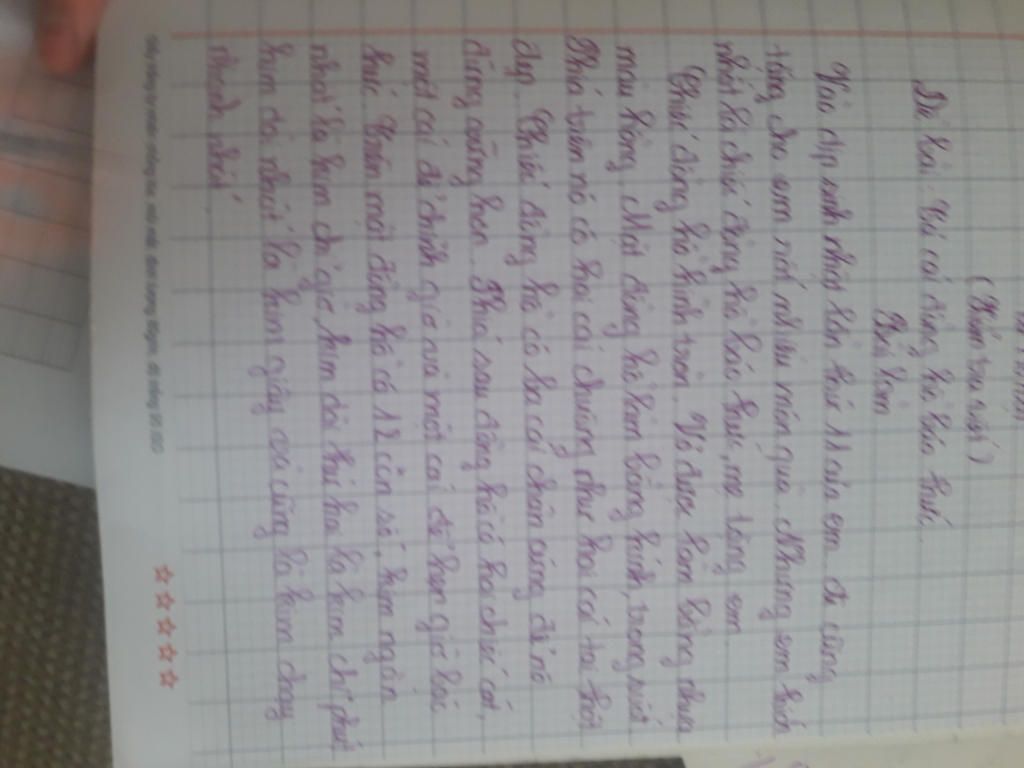 (Kiểm tra viết)
Đề bài: Tả cái đồng hồ báo thức.
Bài làm
Vào dịp sinh nhật lần thứ 11 của em. Ai cũng
tặng cho em rất nhiều món quà. Nhưng em thích
nhất là chiếc đồng hồ báo thức, mẹ tặng em.
Chiếc đồng hồ hình tròn. Vỏ được làm bằng nhựa
màu hồng. Mặt đồng hồ làm bằng kính, trong suốt
Phía trên nó có hai cái chuông như hai cái tai thật
đẹp. Chiếc đồng hồ có ba cái chân cứng để nó
đứng vững hơn. Phía sau đồng hồ có hai chiếc cót,
một cái để chỉnh giờ và một cái để hẹn giờ báo
thức. Trên mặt đồng hồ có 12 con số, kim ngắn
nhất là kim chỉ giờ, kim dài thứ hai là kim chỉ phút
kim dài nhất là kim giây và cũng là kim chạy
nhanh nhất.